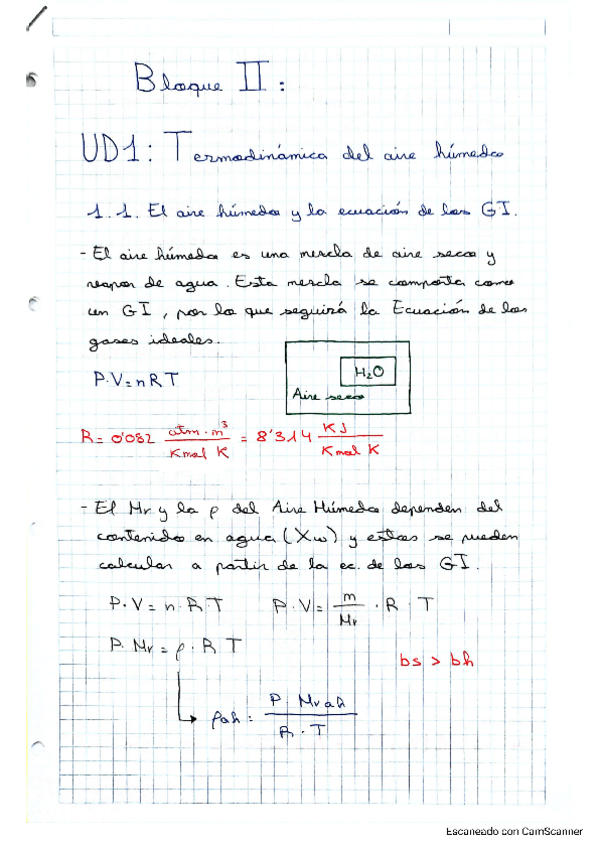 Bloque II:
UD1: Termodinámica del aire húmedo
1.1. El aire húmedo y la ecuación de los GI.
- El aire húmedo es una mezcla de aire seco y
vapor de agua. Esta mezcla se comporta como
un GI, por lo que seguirá la Ecuación de los
gases ideales.
P·V=nRT
H₂O
Aire seco
R= 0'082 atm·m³/Kmol K = 8'314 KJ/Kmol K
- El Mr y la ρ del Aire Húmedo dependen del
contenido en agua (Xw) y estas se pueden
calcular a partir de la ec. de los GI.
P·V= n·R·T P·V= m/Mr ·R·T
P·Mr = ρ·R T
bs > bh
ρah = P Mrah / R·T
Escaneado con CamScanner